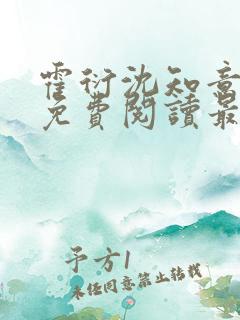 霍衍沈知意
免費閱讀最
予方1
未经同意禁止转载